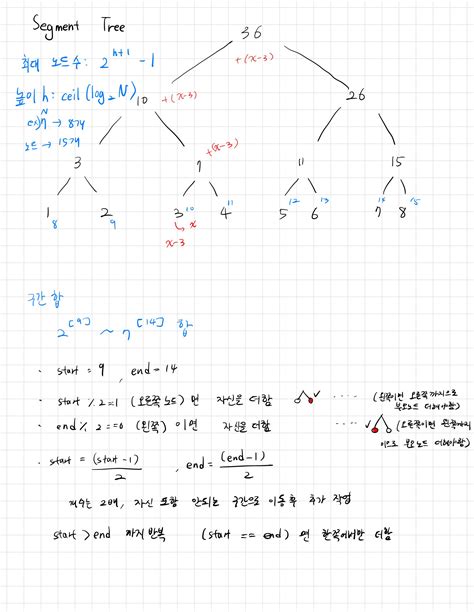 Segment Tree
최대 노드 수: 2^(h+1) - 1
높이 h: ceil(log₂N)
ex) N → 8개
노드 → 15개
36
+(x-3)
10 +(x-3)
26
3
7 +(x-3)
11
15
1 8
2 9
3 10 → x
x-3
4 11
5 12
6 13
7 14
8 15
구간 합
2^[9] ~ 7^[14] 합
· start = 9, end = 14
· start % 2 == 1 (오른쪽 노드) 면 자신을 더함 ···· (왼쪽이면 오른쪽까지으로 부모노드 더해야함)
· end % 2 == 0 (왼쪽) 이면 자신을 더함 ···· (오른쪽이면 왼쪽까지
으로 부모노드 더해야함)
· start = (start-1) / 2, end = (end-1) / 2
2배, 자신 포함 안되는 구간으로 이동 후 추가 작업
start > end 까지 반복 (start == end) 면 한쪽에서만 더함